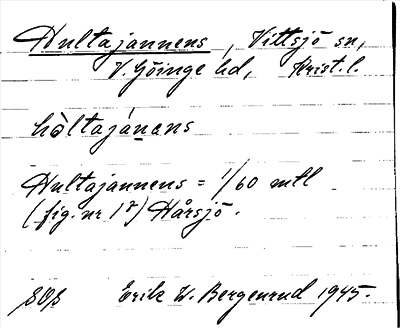 Hultajannens, Vittsjö sn,
V. Göinge hd, Krist. l.
hòltajánans
Hultajannens = 1/60 mtl
(fig. nr 17) Hårsjö.
Erik W. Bergenrud 1945.